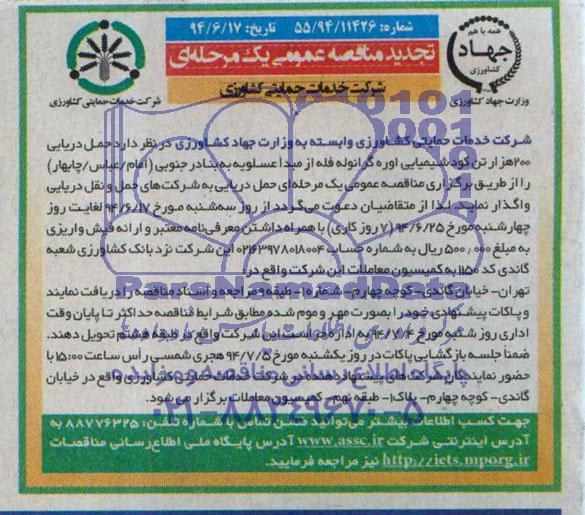 شماره: ۵۵/۹۴/۱۱۴۲۶ تاریخ: ۹۴/۶/۱۷
تجدید مناقصه عمومی یک مرحله‌ای
شرکت خدمات حمایتی کشاورزی
همه با هم
جهاد
کشاورزی
وزارت جهاد کشاورزی
شرکت خدمات حمایتی کشاورزی
شرکت خدمات حمایتی کشاورزی وابسته به وزارت جهاد کشاورزی در نظر دارد حمل دریایی
۲۰۰هزار تن کود شیمیایی اوره گرانوله فله از مبدأ عسلویه به بنادر جنوبی (امام/عباس/چابهار)
را از طریق برگزاری مناقصه عمومی یک مرحله‌ای حمل دریایی به شرکت‌های حمل و نقل دریایی
واگذار نماید. لذا از متقاضیان دعوت می‌گردد از روز سه‌شنبه مورخ ۹۴/۶/۱۷ لغایت روز
چهارشنبه مورخ ۹۴/۶/۲۵ (۷ روز کاری) با همراه داشتن معرفی‌نامه معتبر و ارائه فیش واریزی
به مبلغ ۵۰۰,۰۰۰ ریال به شماره حساب ۰۲۱۶۳۹۷۸۰۱۸۰۰۴ این شرکت نزد بانک کشاورزی شعبه
گاندی کد ۱۱۵۰ به کمیسیون معاملات این شرکت واقع در:
تهران- خیابان گاندی- کوچه چهارم- شماره ۱- طبقه ۹ مراجعه و اسناد مناقصه را دریافت نمایند
و پاکات پیشنهادی خود را بصورت مهر و موم شده مطابق شرایط مناقصه حداکثر تا پایان وقت
اداری روز شنبه مورخ ۹۴/۷/۴ به اداره حراست این شرکت واقع در طبقه هشتم تحویل دهند.
ضمناً جلسه بازگشایی پاکات در روز یکشنبه مورخ ۹۴/۷/۵ هجری شمسی رأس ساعت ۱۵:۰۰ با
حضور نمایندگان شرکت‌های پیشنهاددهنده در شرکت خدمات حمایتی کشاورزی واقع در خیابان
گاندی- کوچه چهارم- پلاک۱- طبقه نهم- کمیسیون معاملات برگزار می‌شود.
جهت کسب اطلاعات بیشتر می‌توانید ضمن تماس با شماره تلفن: ۸۸۷۷۶۳۲۵ به
آدرس اینترنتی شرکت www.assc.ir آدرس پایگاه ملی اطلاع‌رسانی مناقصات
http://iets.mporg.ir نیز مراجعه فرمایید.
پایگاه اطلاع رسانی مناقصه و مزایده
۰۲۱-۸۸۳۴۹۶۷۰-۵